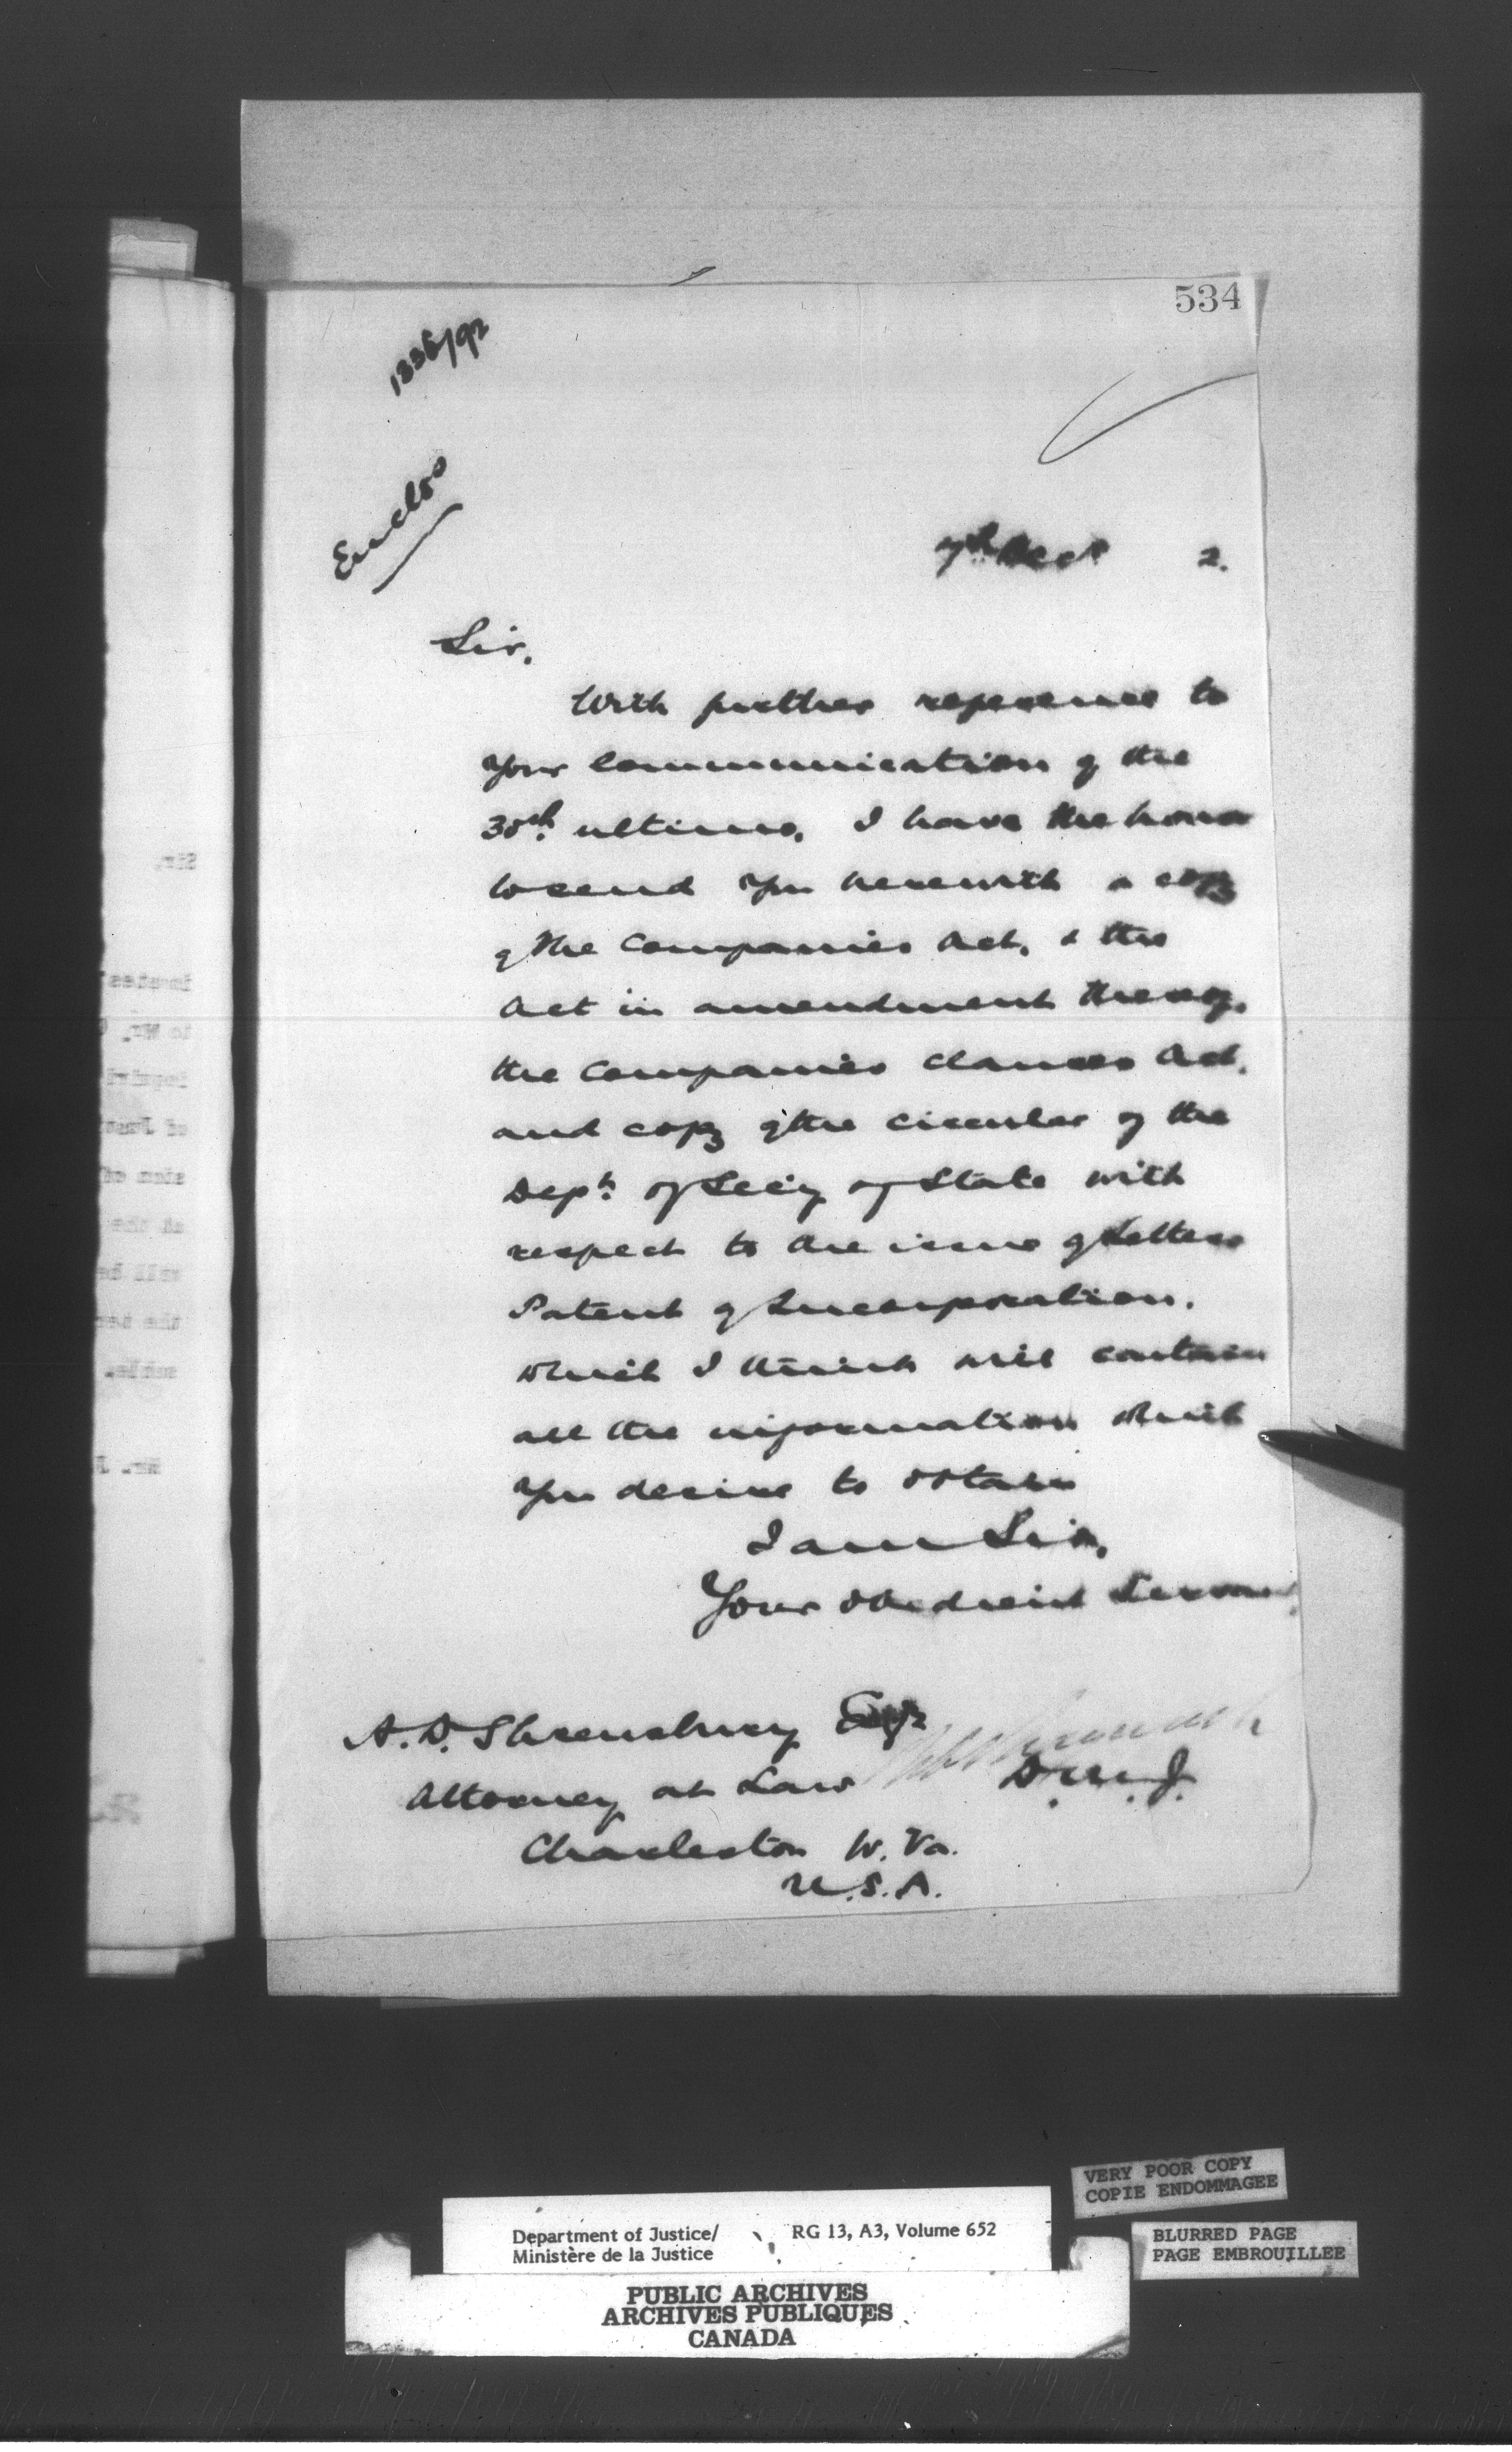 534
1336/92
Enclos
7th Dec 2.
Sir,
With further reference to
your communication of the
30th ultimo, I have the honor
to send you herewith a copy
of the Companies Act, & the
Act in amendment thereof,
the Companies Clauses Act,
and copy of the circular of the
Dept. of Secy of State with
respect to the issue of Letters
Patent of Incorporation,
which I think will contain
all the information which
you desire to obtain
I am Sir,
Your obedient Servant,
A. D. Shrewsbury Esq
Attorney at Law
D.M.J.
Charleston W. Va.
U.S.A.
VERY POOR COPY
COPIE ENDOMMAGEE
BLURRED PAGE
PAGE EMBROUILLEE
Department of Justice/ RG 13, A3, Volume 652
Ministère de la Justice
PUBLIC ARCHIVES
ARCHIVES PUBLIQUES
CANADA